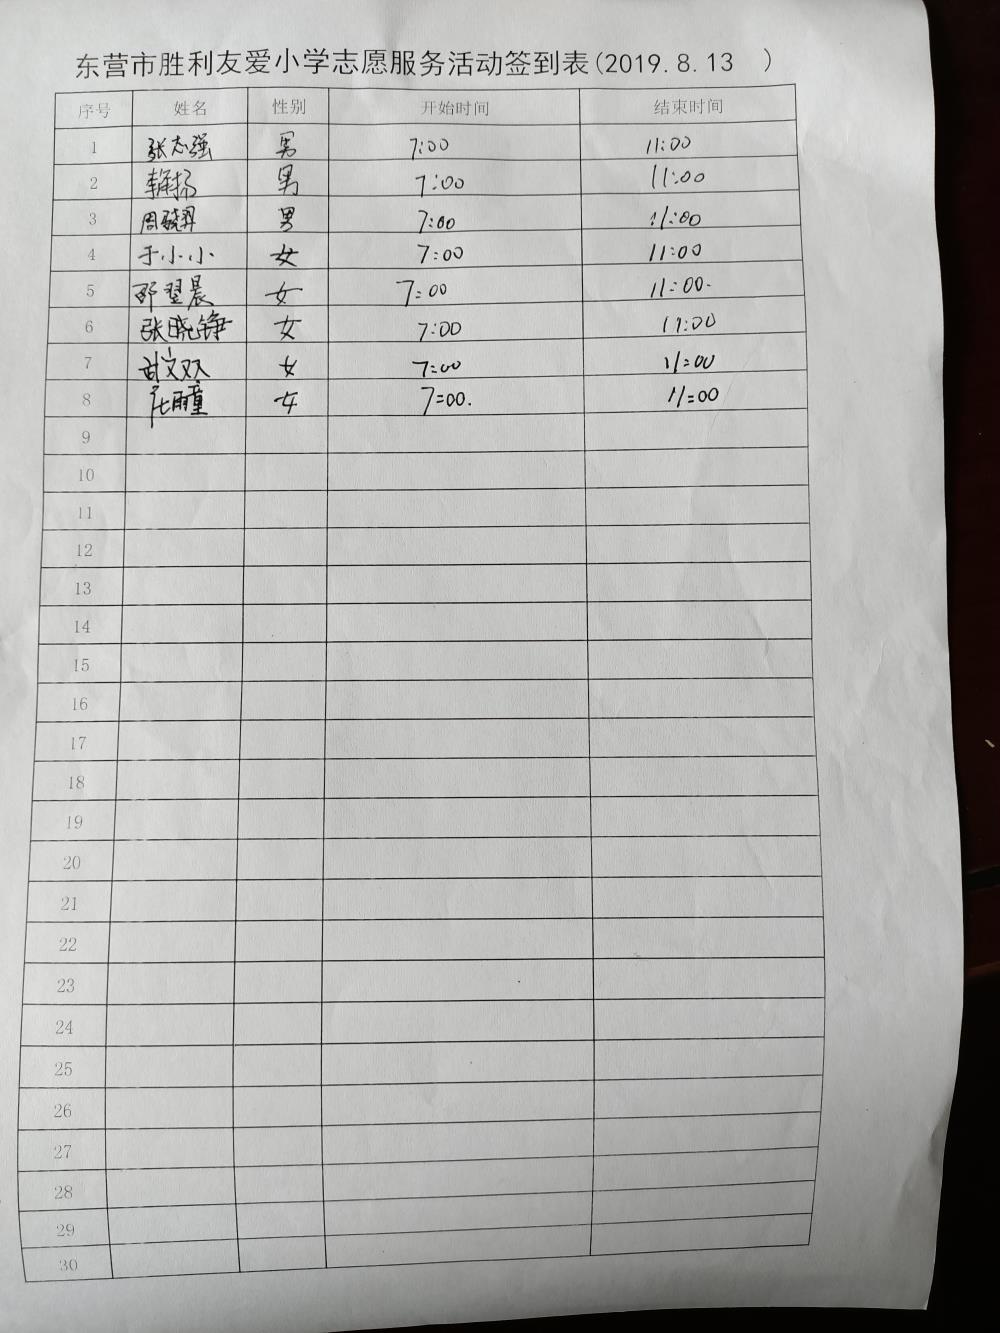 东营市胜利友爱小学志愿服务活动签到表(2019.8.13 )
序号 姓名 性别 开始时间 结束时间
1 张志强 男 7:00 11:00
2 男 7:00 11:00
3 周 男 7:00 11:00
4 于小小 女 7:00 11:00
5 邵翌晨 女 7:00 11:00.
6 张晓铮 女 7:00 11:00
7 文双 女 7:00 11:00
8 雨童 女 7=00. 11=00
9
10
11
12
13
14
15
16
17
18
19
20
21
22
23
24
25
26
27
28
29
30